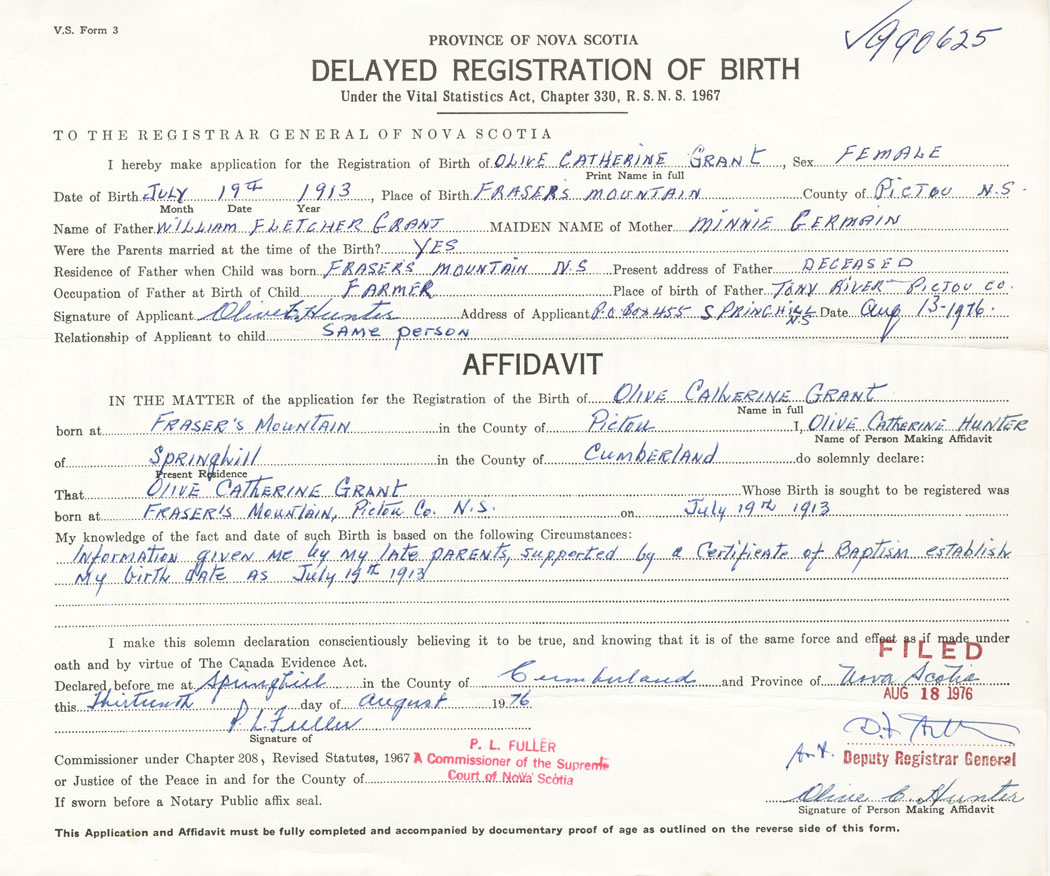 V.S. Form 3
990625
PROVINCE OF NOVA SCOTIA
DELAYED REGISTRATION OF BIRTH
Under the Vital Statistics Act, Chapter 330, R.S.N.S. 1967
TO THE REGISTRAR GENERAL OF NOVA SCOTIA
I hereby make application for the Registration of Birth of OLIVE CATHERINE GRANT, Sex FEMALE
Print Name in full
Date of Birth JULY 19TH 1913, Place of Birth FRASER'S MOUNTAIN County of PICTOU N.S.
Month Date Year
Name of Father WILLIAM FLETCHER GRANT MAIDEN NAME of Mother MINNIE GERMAIN
Were the Parents married at the time of the Birth? YES
Residence of Father when Child was born FRASER'S MOUNTAIN N.S Present address of Father DECEASED
Occupation of Father at Birth of Child FARMER Place of birth of Father TONY RIVER - PICTOU CO.
Signature of Applicant Olive C. Hunter Address of Applicant P.O. BOX 455 SPRINGHILL N.S Date Aug 13-1976.
Relationship of Applicant to child SAME person
AFFIDAVIT
IN THE MATTER of the application for the Registration of the Birth of OLIVE CATHERINE GRANT
Name in full
born at FRASER'S MOUNTAIN in the County of Pictou I, OLIVE CATHERINE HUNTER
Name of Person Making Affidavit
of Springhill in the County of CUMBERLAND do solemnly declare:
Present Residence
That OLIVE CATHERINE GRANT Whose Birth is sought to be registered was
born at FRASER'S MOUNTAIN, PICTOU Co. N.S. on July 19TH 1913
My knowledge of the fact and date of such Birth is based on the following Circumstances:
Information given me by my late PARENTS, supported by a Certificate of Baptism establish
My birth date as July 19th 1913
I make this solemn declaration conscientiously believing it to be true, and knowing that it is of the same force and effect as if made under
oath and by virtue of The Canada Evidence Act.
FILED
Declared before me at Springhill in the County of Cumberland and Province of Nova Scotia
AUG 18 1976
this thirteenth day of August 1976
P. L. Fuller
Signature of
P. L. FULLER
Commissioner under Chapter 208, Revised Statutes, 1967 A Commissioner of the Supreme
Deputy Registrar General
or Justice of the Peace in and for the County of Court of Nova Scotia
Olive C Hunter
If sworn before a Notary Public affix seal.
Signature of Person Making Affidavit
This Application and Affidavit must be fully completed and accompanied by documentary proof of age as outlined on the reverse side of this form.